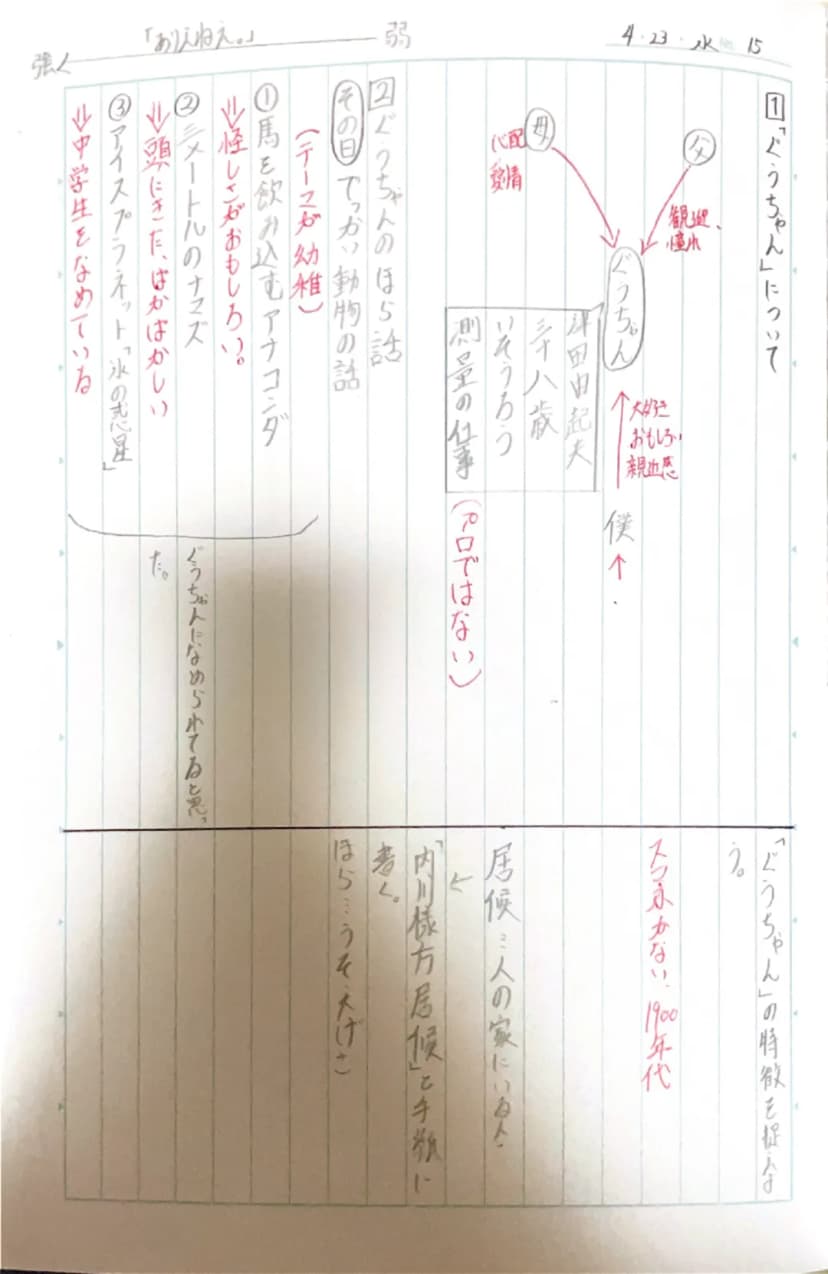 4・23・水 15
強く 「ありえねえ。」 弱
1 「ぐうちゃん」について
父
観迎、
憧れ
母
心配
愛情
ぐうちゃん
大好き
おもしろい
親近感
僕
津田由起夫
三十八歳
いそうろう
測量の仕事
(プロではない)
2 ぐうちゃんのほら話
その日 でっかい動物の話
(テーマが幼稚)
① 馬を飲み込むアナコンダ
⇒怪しさがおもしろい。
② 三メートルのナマズ
⇒頭にきた、ばかばかしい
③ アイスプラネット「氷の惑星」
⇒中学生をなめている
ぐうちゃんになめられてると思っ
た。
「ぐうちゃん」の特徴を捉えよ
う。
スマホがない、1900年代
居候…人の家にいる人
←
「内川様方居候」と手紙に
書く。
ほら…うそ、大げさ